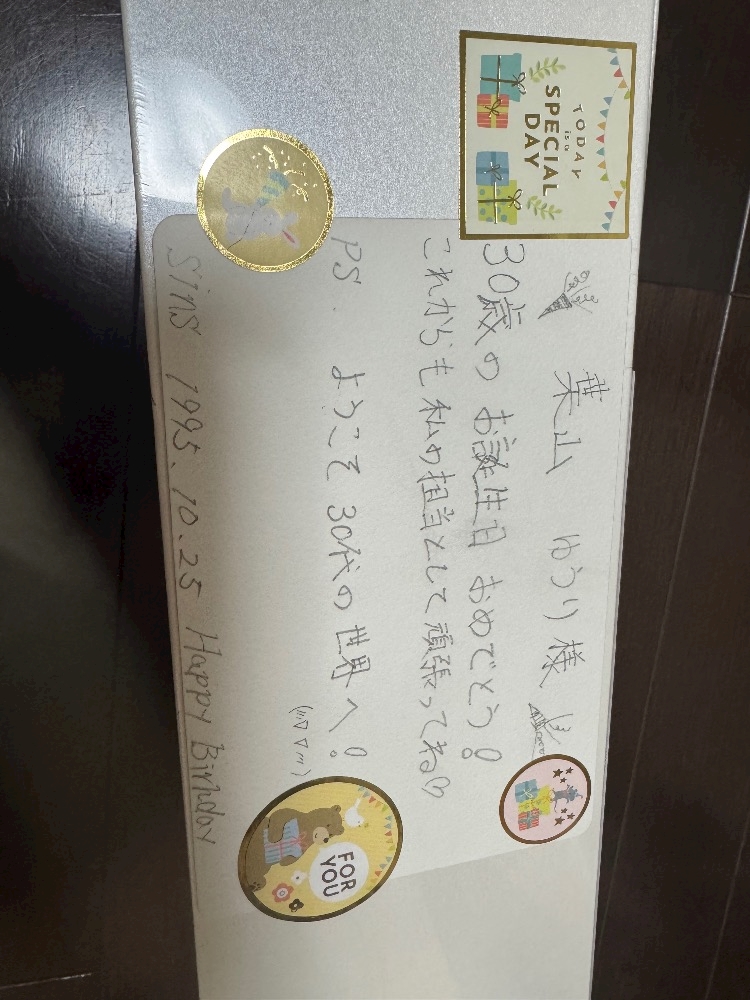 TODAY
is a
SPECIAL
DAY
葉山 ゆうり様
30歳の お誕生日 おめでとう!
これからも 私の担当として 頑張ってね♡
PS. ようこそ 30代の世界へ!
("'∇∇"')
Sins 1995.10.25 Happy Birthday
FOR
YOU